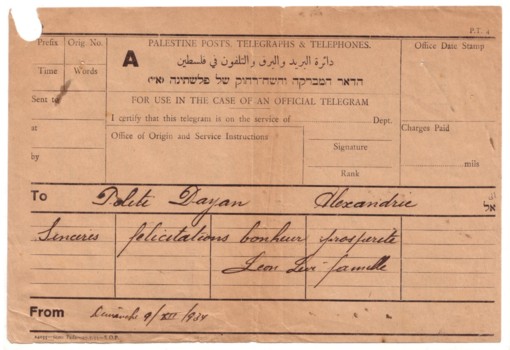 P.T. 4
Prefix Orig No. A PALESTINE POSTS, TELEGRAPHS & TELEPHONES. Office Date Stamp
دائرة البريد والبرق والتلفون في فلسطين
Time Words הדאר המברקה והטלפון של פלשתינה (א״י)
Sent to FOR USE IN THE CASE OF AN OFFICIAL TELEGRAM
I certify that this telegram is on the service of Dept.
at Office of Origin and Service Instructions. Charges Paid
Signature
by mils
Rank
To Polete Dayan Alexandrie אל
Sinceres felicitations bonheur prosperite
Leon Levi famille
From Dimanche 9/XII/934